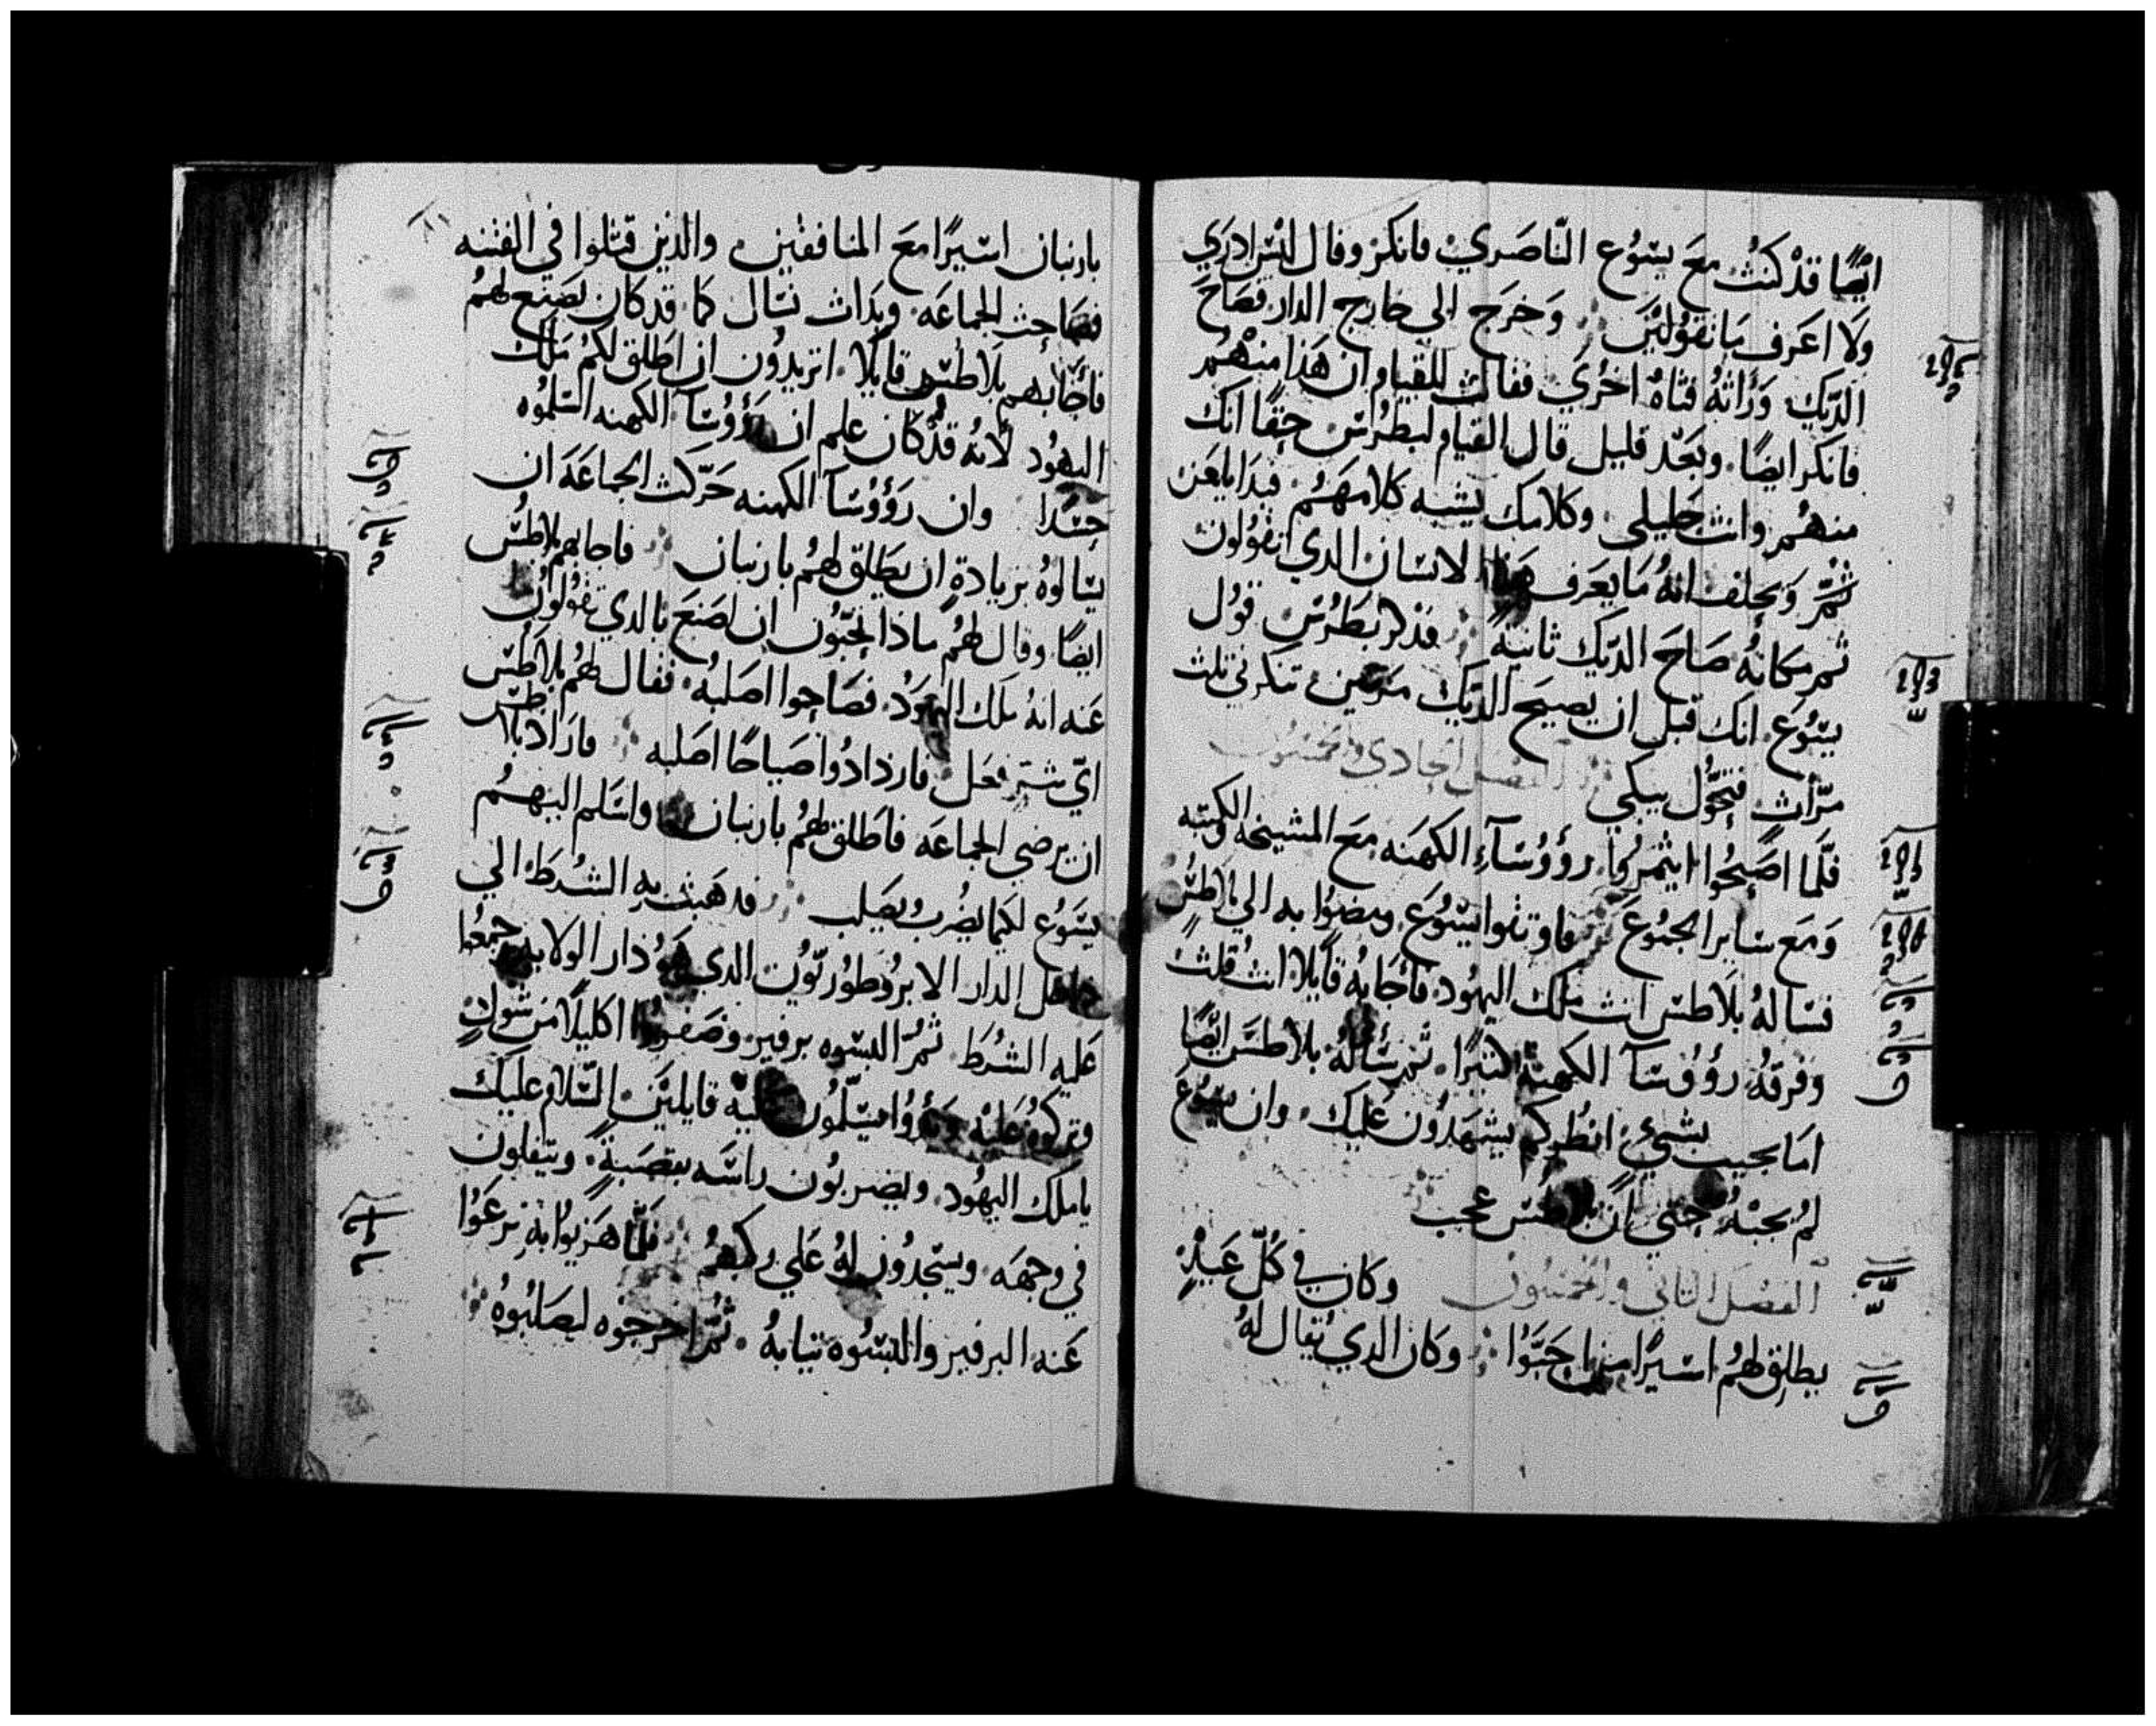 ايضًا قدْ كنتُ معَ يسُوع النّاصَري فانكرَ وقال لسْت ادرَي
ولَا اعَرف مَا تقوُليْن وَخرَج الي خارج الدار فصَاحَ
الدّيك وَرَأتهُ فتاهٌ اخرُي فقالت للقيام ان هَذا منهُم
فانكر ايضًا وبعَد قليل قال القيام لبطرُس حقًا انك
منهُم وانت جَليلي وكلامك يشبه كلامهَمُ فبدَا يلعَن
ثمَّ وَيحلف انهُ مَا يعَرف هَذا الانسَان الدي تقوُلون
ثمر مكانهُ صَاحَ الدّيك ثانيةً فذكر بَطرُس قوُل
يسُوعَ انك قبل ان يصيحَ الدّيك مرَتين تنكرني تلث
مرّات فتحوّل يبكي الفصل الحادي والخمسون
فلّما اصَبحُوا ايتمرُوا رؤوُسَاءِ الكهَنَه معَ المشيخه والكتبه
وَمَع سَاير الجمُوعَ فاوتقوا يسُوعَ ومضوُا به الي بلاطسُ
فسَالهُ بلَاطس انت ملك اليهُود فاجَابهُ قايلا انت قلت
وَفرقهُ رؤوُسَا الكهنة كتيرًا ثمر سَأَلهُ بلاطسَ ايضًا
امَا تجيب بشيءٍ انظُر كم يشهَدوُن عَليك وان يسُوعَ
لمُ يجبْهُ حَتي ان بلاطسُ عجب
الفصل الثاني والخمسون وكان في كُلّ عَيدٍ
يطلق لهمُ اسيرًا من احَبّوُا وكان الدي يُقال لهُ
بارنبان اسيرًا معَ المنافقين والدين قتلوا في الفتنه
فصَاحت الجماعَه وبَدات تسَال كما قد كان يَصَنع لهمُ
فأجَابهم بلَاطس قايلَا اتريدوُن ان اطَلق لكمُ مَلك
اليهُود لانهُ قدْ كان علم ان رَؤوُسَا الكهنه اسَلموُه
حسَدا وان رَؤوُسَا الكهنه حَرّكت الجماعَة ان
يسَالوهُ بزيادةٍ ان يَطلق لهمُ بارنبان فاجابهم بلاطسُ
ايضًا وقال لهمُ ماذا تحبّوُن ان اصَنعَ بالدي تقوُلوُن
عَنه انهُ ملك اليهوُد فصَاحوا اصَلبهُ فقال لهمُ بلَاطس
ايّ شرٍ فعَل فازدادُوا صَياحًا اصَلبه فارَاد بلاطس
ان يرضي الجماعَه فاَطلق لهمُ بارنبان واسَلم اليهمُ
يسَوُع لكيما يضُربُ ويصَلب فدهَبت به الشُرط الي
داخل الدار الابرُوَطوُريوُن الدي هَوُ دار الولايه وجمعُوا
عَليه الشُرَط ثمُّ البسُوه برفير وضَفرُوا اكليلًا من شوك
وتركوُهُ عَليْه وبَدؤُا يسَلّمُون عليه قايليَن السّلام عَليك
يا ملك اليهوُد ويضربُون راسَه بقصَبةٍ ويتفلون
في وجهه ويسَجدوُن لهُ عَلي رُكبهمُ فلمّا هَزيوُا به نزعَوُا
عَنه البرفير والبسُوه تيابهُ ثمُ اخرجوُه ليصَلبُوهُ